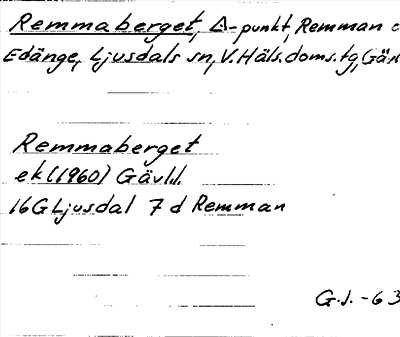 Remmaberget, Δ-punkt, Remman
Edänge, Ljusdals sn, V. Häls. doms. tg, Gäv
Remmaberget
ek (1960) Gävl.l.
16G Ljusdal 7 d Remman
G.J. -63